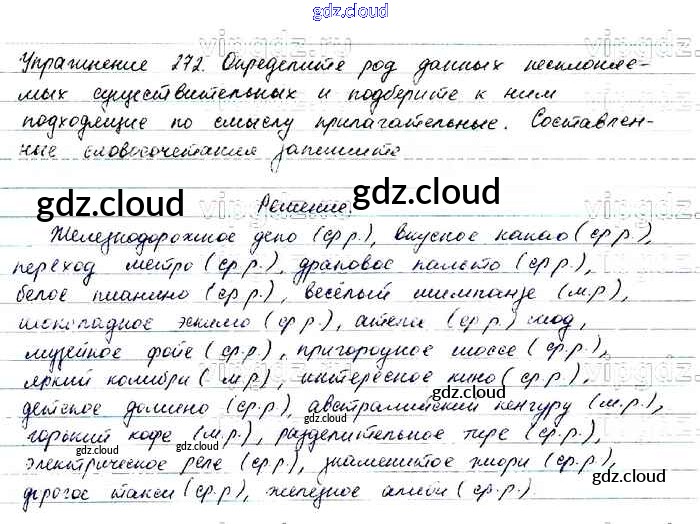 gdz.cloud
Упражнение 272. Определите род данных несклоняе-
мых существительных и подберите к ним
подходящие по смыслу прилагательные. Составлен-
ные словосочетания запишите
gdz.cloud gdz.cloud
Решение.
Железнодорожное депо (ср р.), вкусное какао (ср р.),
переход метро (ср.р.), драповое пальто (ср.р.),
белое пианино (ср р.), весёлый шимпанзе (м.р.),
шоколадное эскимо (ср р.), ателье (ср р.) мод,
музейное фойе (ср.р.), пригородное шоссе (ср.р.),
яркий колибри (м.р.), интересное кино (ср р.),
gdz.cloud
детское домино (ср.р.), австралийский кенгуру (м.р.),
gdz.cloud
горький кофе (м.р.), разделительное тире (ср.р.),
gdz.cloud gdz.cloud
электрическое реле (ср.р.), знаменитое жюри (ср.р.),
gdz.cloud
дорогое такси (ср.р), железное алиби (ср.р.).